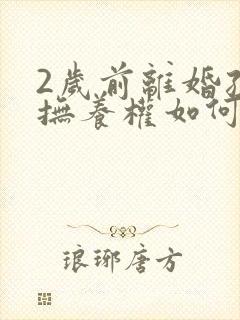 2歲前離婚孩
撫養權如何
琅琊唐方